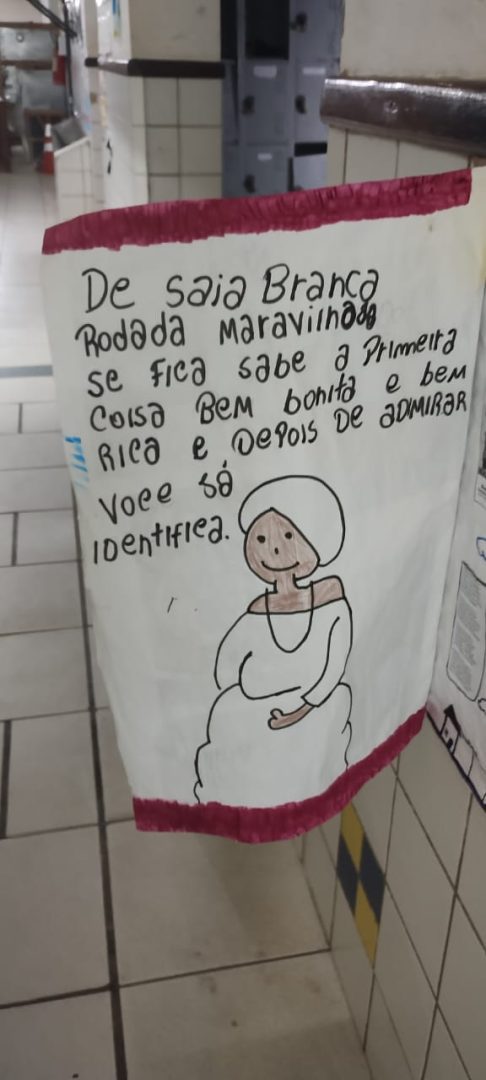 De saia Branca
Rodada Maravilhada
se fica sabe a Primmeira
coisa Bem bonita e bem
Rica e Depois De aDMIRAR
Voce só
IDentifica.